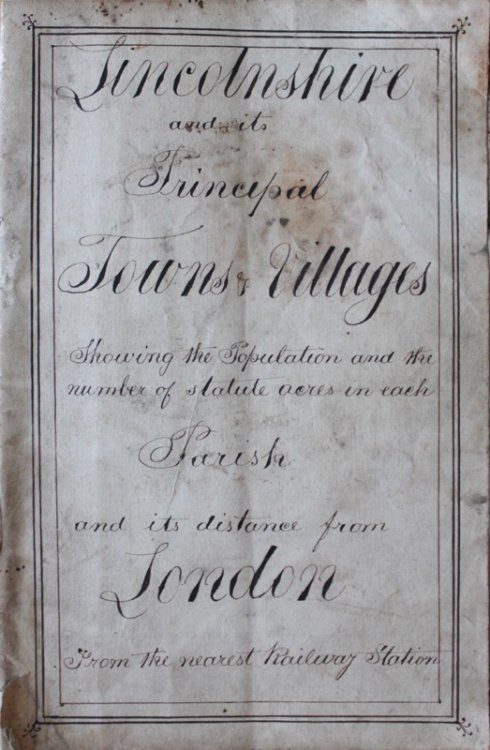 Lincolnshire
and its
Principal
Towns & Villages
Showing the Population and the
number of statute acres in each
Parish
and its distance from
London
From the nearest Railway Station